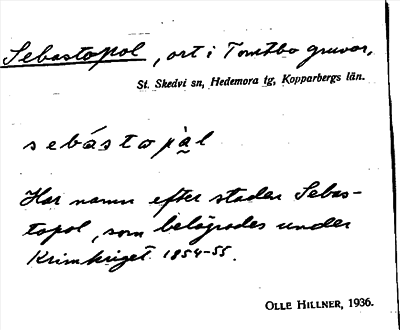 Sebastopol, ort i Tomtbo gruvor,
St. Skedvi sn, Hedemora tg, Kopparbergs län.
sebástopàl
Har namn efter staden Sebas-
topol, som belägrades under
Krimkriget 1854-55.
OLLE HILLNER, 1936.